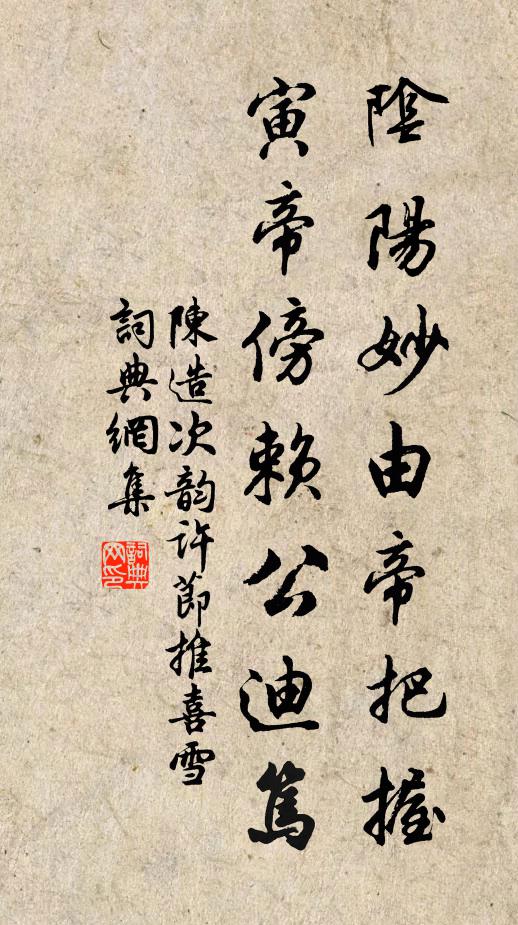 陰陽妙由帝把握
寅帝傍賴公迪篤
陳造次韵許節推喜雪
詞典網集
詞典網印